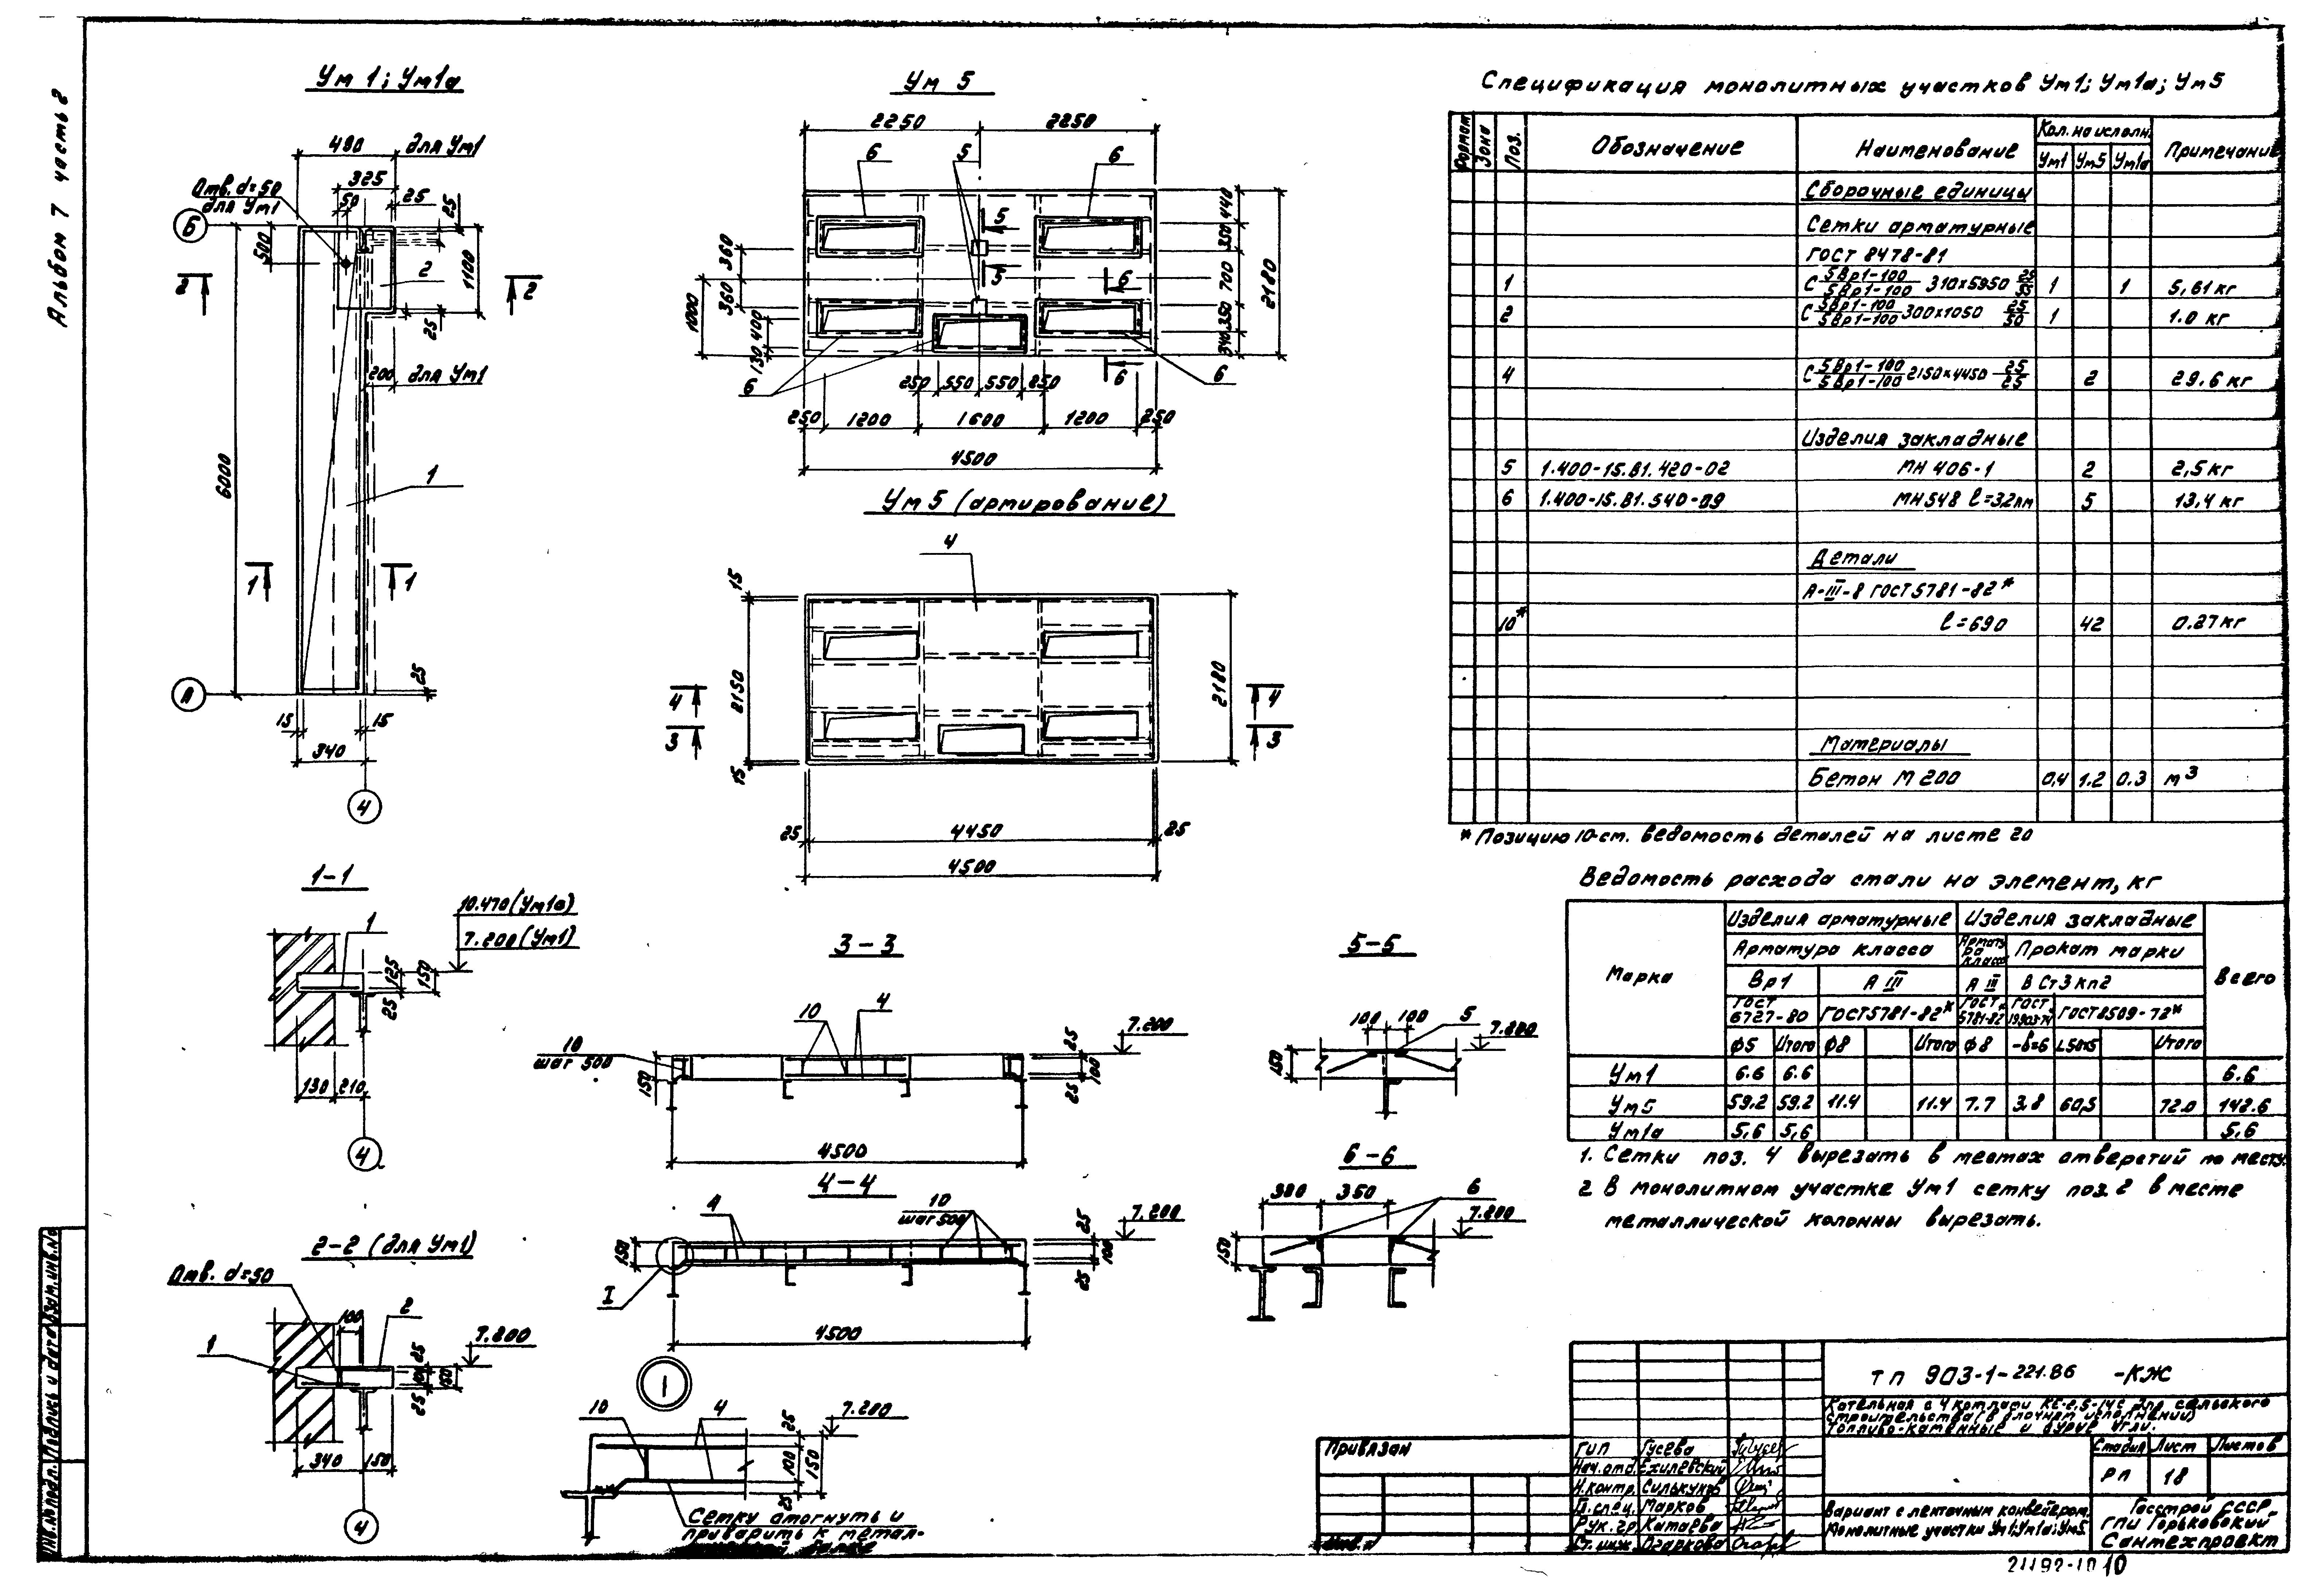 Альбом 7 часть 2
Ум 1; Ум1а
480 для Ум1
325
Отв. d=50
для Ум1
50
25
25
Б
500
2
1100
2 2
25
200 для Ум1
6000
1
1 1
25
А
15 15
340
4
Ум 5
2250 2250
6 5 6
5
5
6
6
440
350
700
350
340
2180
360
360
1000
400
130
6
6
250 550 550 250
250 1200 1600 1200 250
4500
Ум 5 (армирование)
4
15
2150
15
2180
4 4
3 3
25 4450 25
4500
1-1
10.470 (Ум1а)
7.200 (Ум1)
1
125
150
25
130 210
4
2-2 (для Ум1)
Отв. d=50
100
2
1
7.200
25
100
25
150
340 150
4
3-3
10
шаг 500
10 4
7.200
150
25
100
25
4500
4-4
4
10
шаг 500
7.200
150
25
100
25
I
4500
I
10 4
7.200
25
100
25
150
Сетку отогнуть и
приварить к метал-
балке
5-5
100 100
5
7.200
150
6-6
380 350
6
7.200
150
Спецификация монолитных участков Ум1; Ум1а; Ум5
Формат Зона Поз. Обозначение Наименование Кол. на исполн. Примечание
Ум1 Ум5 Ум1а
Сборочные единицы
Сетки арматурные
ГОСТ 8478-81
1 С 5Вр1-100/5Вр1-100 310х5950 25/35 1 1 5,61 кг
2 С 5Вр1-100/5Вр1-100 300х1050 25/50 1 1.0 кг
4 С 5Вр1-100/5Вр1-100 2150х4450 25/25 2 29.6 кг
Изделия закладные
5 1.400-15.В1.420-02 МН 406-1 2 2,5 кг
6 1.400-15.В1.540-09 МН548 ℓ=3,2пм 5 13,4 кг
Детали
А-III-8 ГОСТ 5781-82*
10* ℓ=690 42 0.27 кг
Материалы
Бетон М 200 0,4 1.2 0.3 м³
* Позицию 10-см. ведомость деталей на листе 20
Ведомость расхода стали на элемент, кг
Марка Изделия арматурные Изделия закладные Всего
Арматура класса Арматура класса Прокат марки
Вр1 А III А III В Ст3 кп2
ГОСТ 6727-80 ГОСТ 5781-82* ГОСТ 5781-82 ГОСТ 19903-74 ГОСТ 8509-72*
Ф5 Итого Ф8 Итого Ф8 -δ=6 L50х5 Итого
Ум1 6.6 6.6 6.6
Ум5 59.2 59.2 11.4 11.4 7.7 3.8 60,5 72.0 142.6
Ум1а 5,6 5,6 5.6
1. Сетки поз. 4 вырезать в местах отверстий по месту.
2 В монолитном участке Ум1 сетку поз. 2 в месте
металлической колонны вырезать.
ТП 903-1-221.86 -КЖ
Котельная с 4 котлами КЕ-2,5-14С для сельского
строительства (в блочном исполнении)
Топливо-каменные и бурые угли.
Стадия Лист Листов
РП 18
Привязан
Инв. №
ГИП Гусева
Нач. отд. Ехилевский
Н.контр. Силькунов
Гл.спец. Марков
Рук. гр. Катаева
Ст. инж. Огаркова
Вариант с ленточным конвейером.
Монолитные участки Ум1; Ум1а; Ум5
Госстрой СССР
ГПИ Горьковский
Сантехпроект
21192-10 10
Инв. № подл. Подпись и дата Взам. инв. №